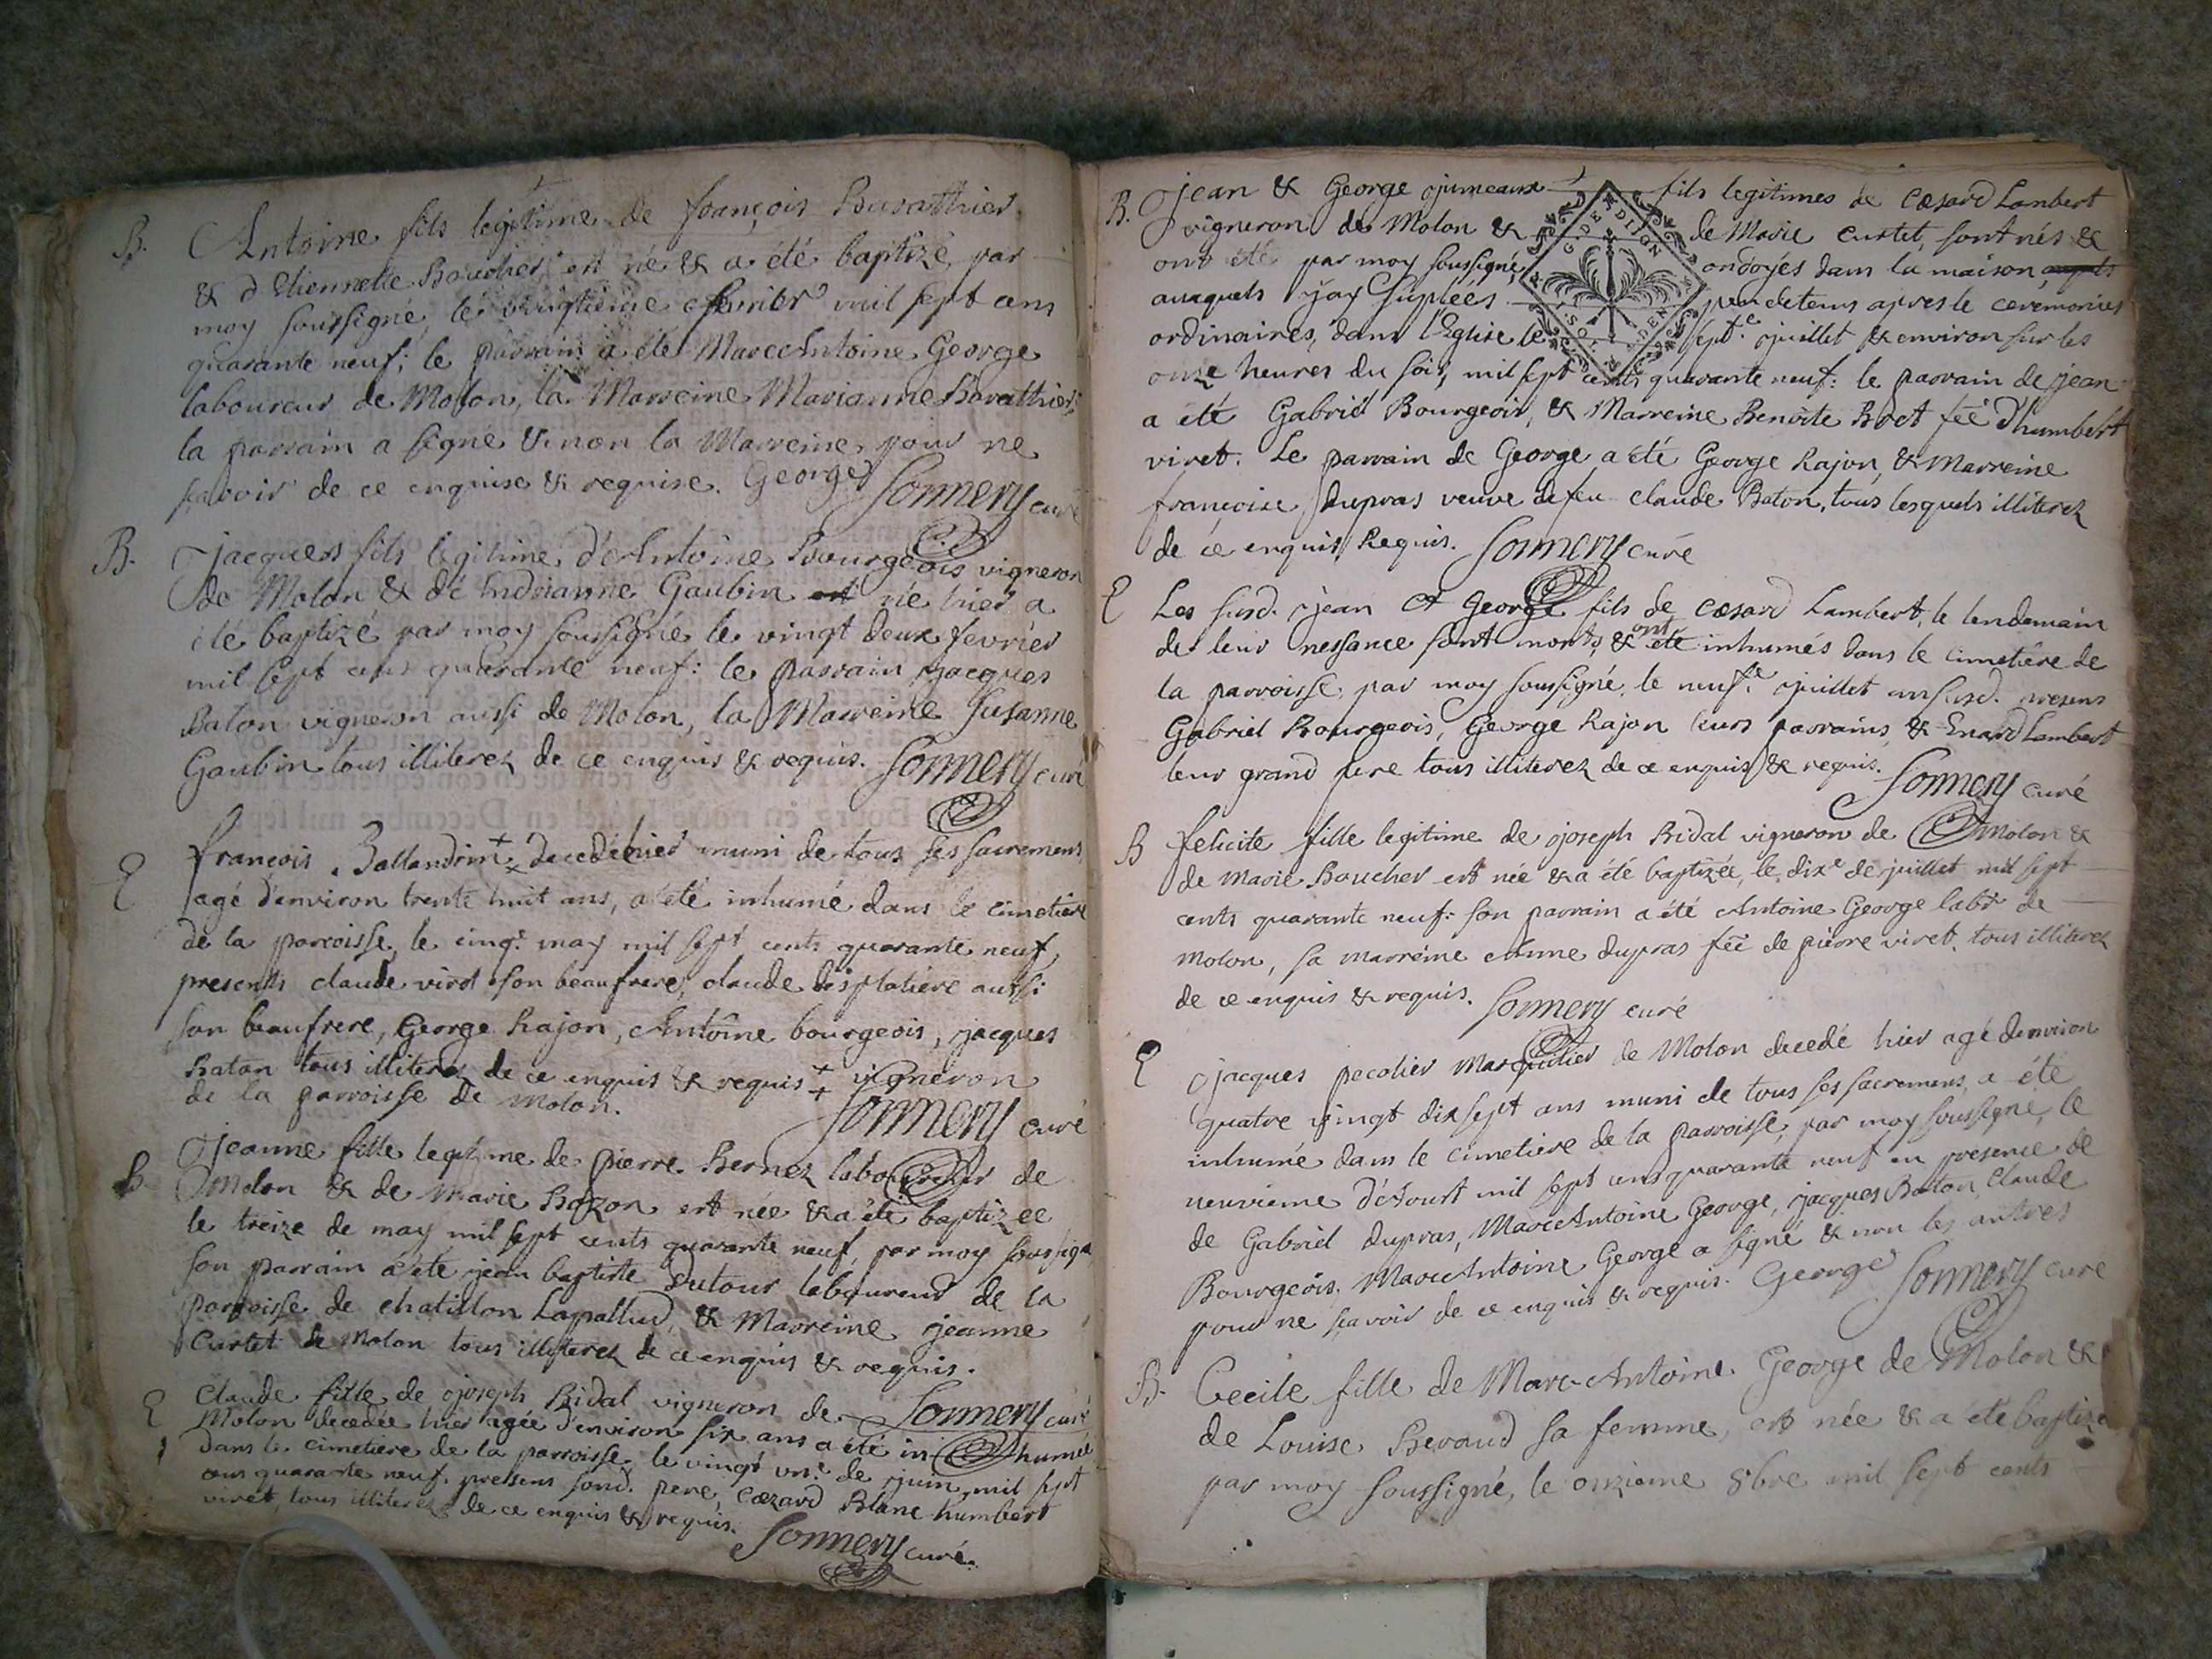 B. Antoine fils legitime de françois Burathier
& d'Etiennette Boucher est né & a été baptizé par
moy soussigné, le vingtieme fevrier mil sept cens
quarante neuf; le parrain a été Marc Antoine George
laboureur de Molon, la Marreine Marianne Barathier;
la parrain a signé & non la Marreine pour ne
sçavoir de ce enquise & requise. George
Sonnery curé
B. jacques fils legitime d'Antoine Bourgeois vigneron
de Molon & de Andrianne Gaubin est né hier a
été baptizé par moy soussigné le vingt deux fevrier
mil sept cens quarante neuf: le parrain jacques
Baton vigneron aussi de Molon, la Marreine Susanne
Gaubin tous illiterez de ce enquis & requis. Sonnery curé
E françois Ballandrin decedé hier muni de tous ses sacremens
agé d'environ trente huit ans, a été inhumé dans le cimetiere
de la parroisse, le cinqe. may mil sept cents quarante neuf,
presents claude viret son beaufrere, claude desplatiere aussi
son beaufrere, George Rajon, Antoine bourgeois, jacques
Baton tous illiterez de ce enquis & requis ‡ vigneron
de la parroisse de Molon.
Sonnery curé
B jeanne fille legitime de pierre Bernez laboureur de
Molon & de Marie Bozon est née & a été baptizée
le treize de may mil sept cents quarante neuf, par moy soussigné
son parrain a été jean baptiste Dutour laboureur de la
parroisse de chatillon Lapallud, & Marreine jeanne
Curtet de Molon tous illiterez de ce enquis & requis.
Sonnery curé
E Claude fille de joseph Bidal vigneron de
Molon decedée hier agée d'environ six ans a été inhumée
dans le cimetiere de la parroisse, le vingt une. de juin mil sept
cens quarante neuf. presens sond. pere, Cæzard Blanc humbert
viret, tous illiterez de ce enquis & requis.
Sonnery curé
B. jean & George jumeaux fils legitimes de Cæsard Lambert
vigneron de Molon & de Marie Curtet, sont nés &
ont été par moy soussigné ondoyés dans la maison
auxquels j'ay supleés peu de tems apres le ceremonies
ordinaires, dans l'Eglise le septe. juillet & environ sur les
onze heures du soir, mil sept cents quarante neuf: le parrain de jean
a été Gabriel Bourgeois, & Marreine Benoite Boet fée d'humbert
viret. Le parrain de George a été George Rajon, & Marreine
françoise Dupras veuve de feu claude Baton, tous lesquels illiterez
de ce enquis Requis. Sonnery curé
E Les susd. jean et George fils de Cæsard Lambert, le lendemain
de leur nessance sont morts & ont été inhumés dans le cimetiére de
la parroisse par moy soussigné, le neufe. juillet an susd. presens
Gabriel Bourgeois, George Rajon leurs parrains & Enard Lambert
leur grand pere tous illiterez de ce enquis & requis.
Sonnery curé
B felicite fille legitime de joseph Bidal vigneron de Molon &
de Marie Boucher est née & a été baptizée, le dixe de juillet mil sept
cents quarante neuf: son parrain a été Antoine George labr de
Molon, sa marreine Anne dupras fée de piérre viret. tous illiterez
de ce enquis & requis. Sonnery curé
E jacques pecolier Marguilier de Molon decedé hier agé denviron
quatre vingt dix sept ans muni de tous ses sacremens, a été
inhumé dans le cimetiere de la parroisse, par moy soussigné, le
neuvieme d'Aoust mil sept cens quarante neuf en presence de
de Gabriel dupras, Marc Antoine George, jacques Baton, Claude
Bourgeois. Marc Antoine George a signé & non les autres
pour ne sçavoir de ce enquis & requis. George Sonnery curé
B. Cecile fille de Marc Antoine George de Molon &
de Louise Beraud sa femme, est née & a été baptizée
par moy soussigné, le onzieme 8bre mil sept cents